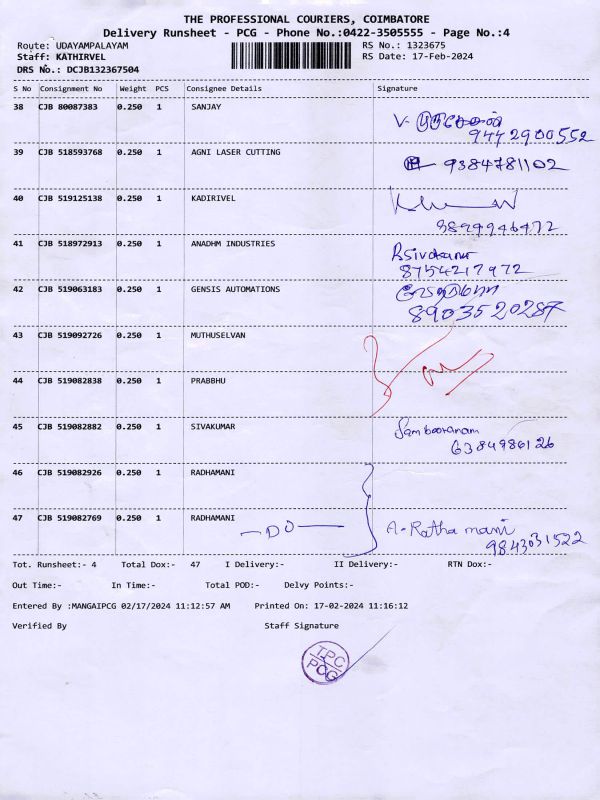 THE PROFESSIONAL COURIERS, COIMBATORE
Delivery Runsheet - PCG - Phone No.:0422-3505555 - Page No.:4
Route: UDAYAMPALAYAM RS No.: 1323675
Staff: KATHIRVEL RS Date: 17-Feb-2024
DRS No.: DCJB132367504
S No Consignment No Weight PCS Consignee Details Signature
38 CJB 80087383 0.250 1 SANJAY
V-
9442900552
39 CJB 518593768 0.250 1 AGNI LASER CUTTING
9384781102
40 CJB 519125138 0.250 1 KADIRIVEL
41 CJB 518972913 0.250 1 ANADHM INDUSTRIES
8754217972
42 CJB 519063183 0.250 1 GENSIS AUTOMATIONS
8903520287
43 CJB 519092726 0.250 1 MUTHUSELVAN
44 CJB 519082838 0.250 1 PRABBHU
45 CJB 519082882 0.250 1 SIVAKUMAR
Sambooranam
6384986126
46 CJB 519082926 0.250 1 RADHAMANI
47 CJB 519082769 0.250 1 RADHAMANI
-DO- A-Ratha mani
9843031522
Tot. Runsheet:- 4 Total Dox:- 47 I Delivery:- II Delivery:- RTN Dox:-
Out Time:- In Time:- Total POD:- Delvy Points:-
Entered By :MANGAIPCG 02/17/2024 11:12:57 AM Printed On: 17-02-2024 11:16:12
Verified By Staff Signature
TPC
PCG